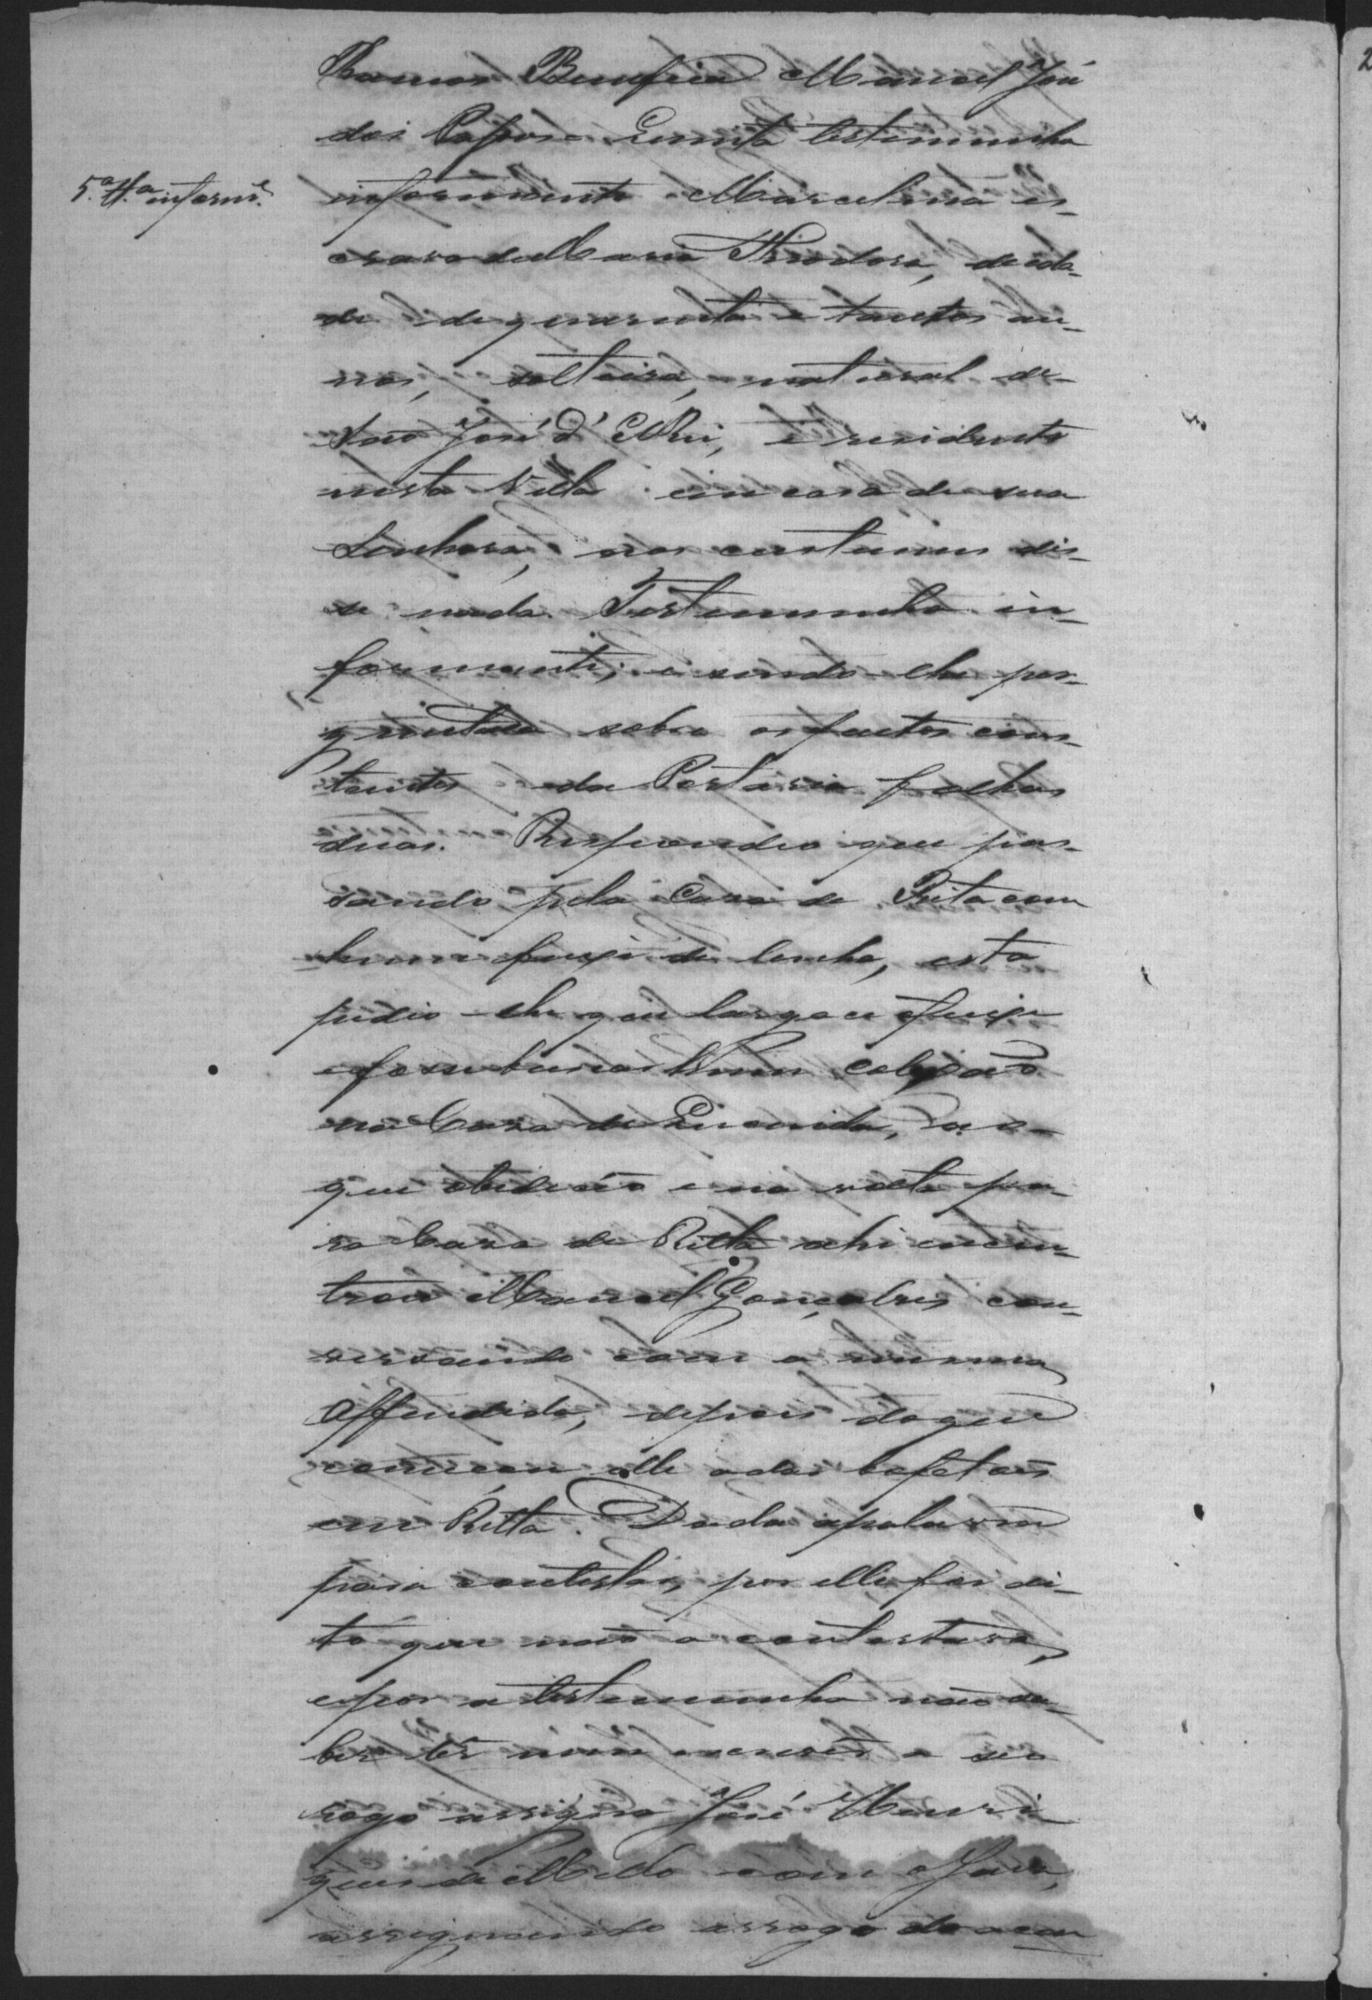 Ramos Bemfica Manoel José
dos Passos. Quinta testemunha
5.ª tt.ª inform.e
informante Marcelina es-
crava de Maria Theodora, de ida-
de de quarenta e tantos an-
nos, solteira, natural de
São José d'El Rei, e residente
nesta Villa em casa de sua
Senhora, nos costumes dis-
se nada. Testemunha in-
formante; e sendo-lhe per-
guntado sobre os factos cons-
tantes da Portaria folhas
duas. Respondeo que pas-
sando pela Casa de Rita com
hum feixe de lenha, esta
pedio-lhe que largace o feixe
e fosse buscar hum
na Casa de, ao
que obedeceo e na volta pa-
ra Casa de Ritta ahi encon-
trou Manoel Gonçalves con-
versando com a mesma
Offendida, depois do que
começou elle a dar bofetões
em Ritta. Dada a palavra
para contestar, por elle foi di-
to que não a contestava,
e por a testemunha não sa-
ber ler nem escrever a seo
rogo assigna José Henri
ques de Mello com o Juiz,
assignando a rogo do acu